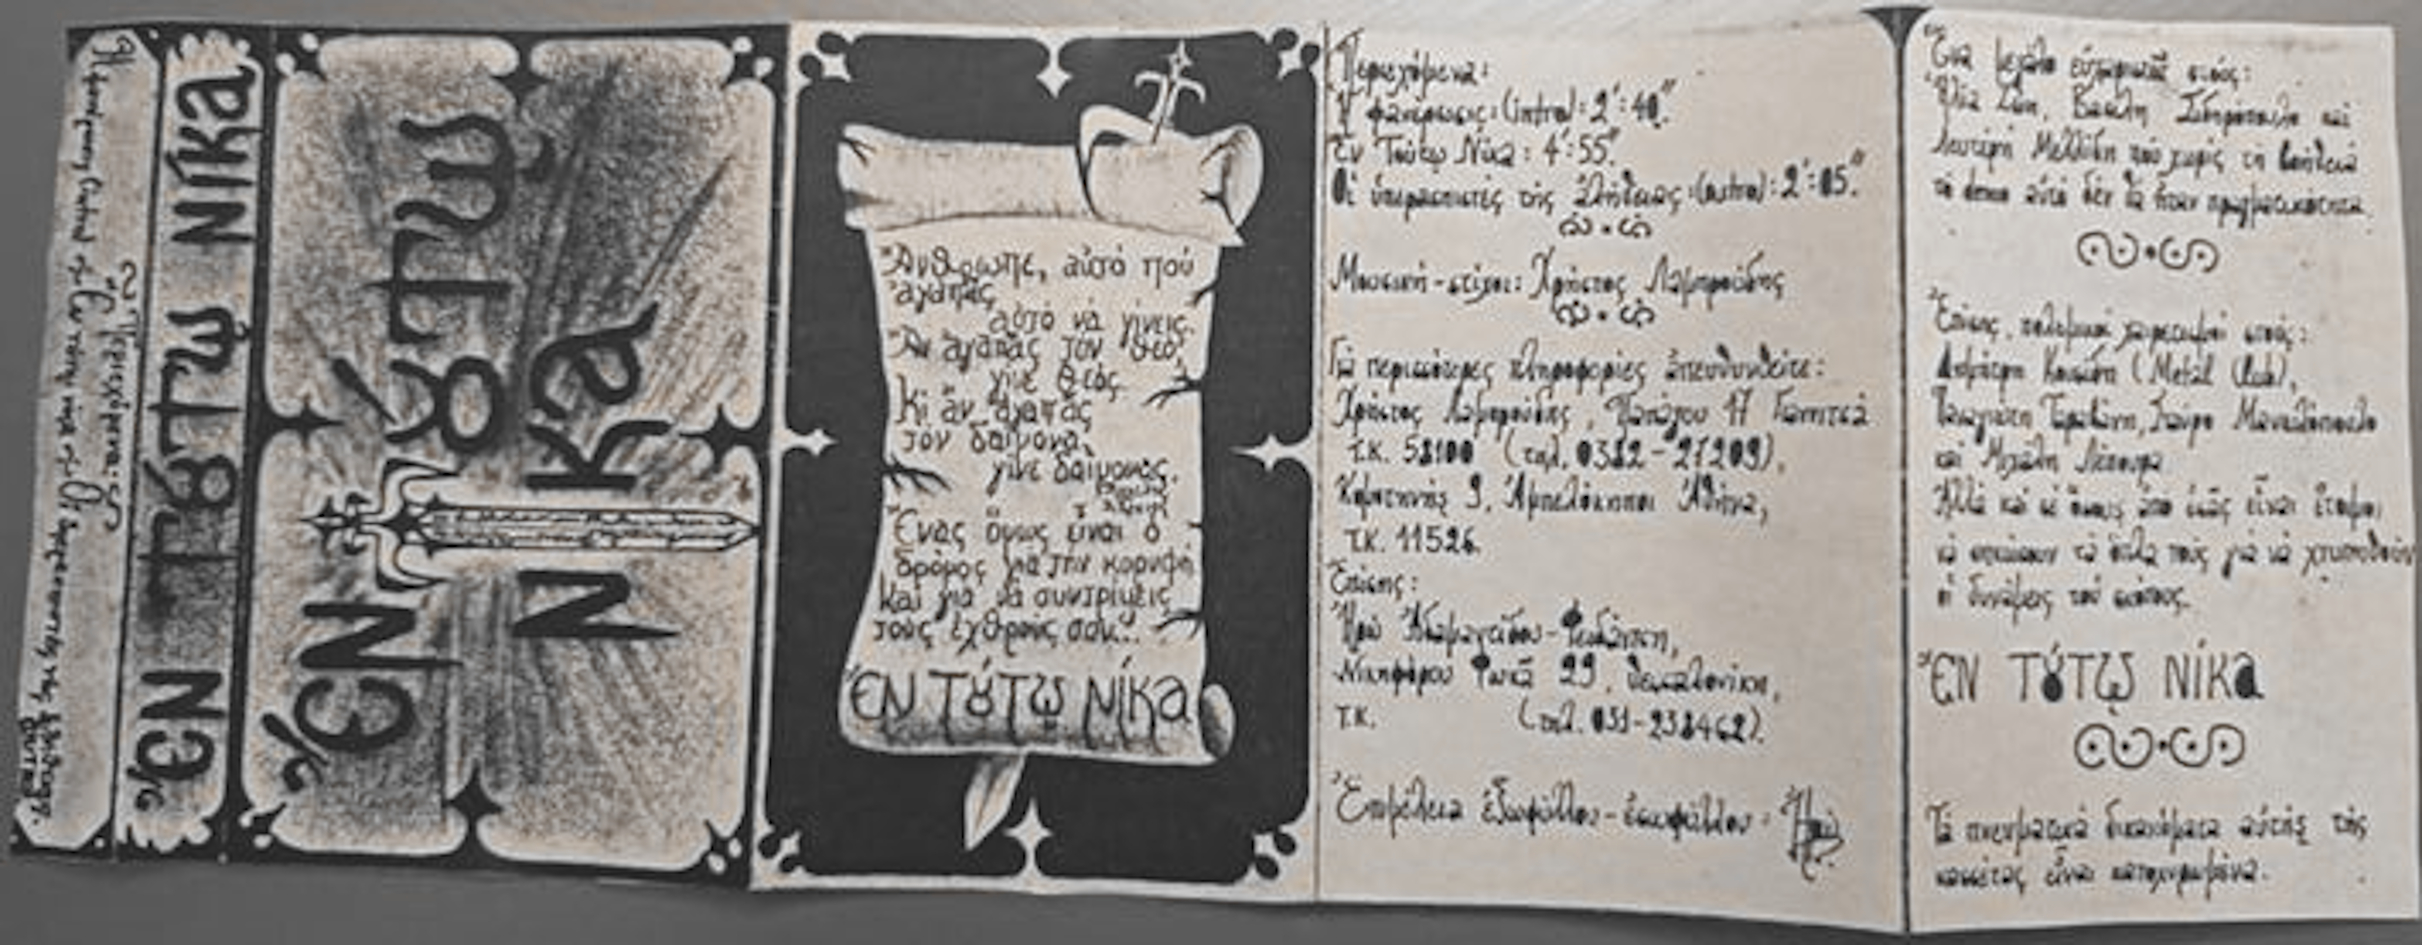 Περιεχόμενα:
Ἡ φανέρωσις: (intro): 2':40".
Ἐν Τούτῳ Νίκα: 4':55".
Οἱ ὑπερασπιστές τῆς ἀλήθειας: (outro): 2':05".
ἘΝ ΤȢ́Τῼ ΝΊΚΑ
ἘΝ ΤȢ́Τῼ
ΝΊΚΑ
"Ἄνθρωπε, αὐτό πού
ἀγαπᾶς
αὐτό νά γίνεις.
Ἄν ἀγαπᾶς τόν Θεό,
γίνε Θεός.
Κι ἄν ἀγαπᾶς
τόν δαίμονα,
γίνε δαίμονας.
Ἕνας ὅμως εἶναι ὁ
δρόμος γιά τήν κορυφή
καί γιά νά συντρίψεις
τούς ἐχθρούς σου:".
ἘΝ ΤȢ́Τῼ ΝΊΚΑ
Μουσική - στίχοι: Χρῆστος Λαμπρούδης
Γιά περισσότερες πληροφορίες ἀπευθυνθεῖτε:
Χρῆστος Λαμπρούδης, Παπάγου 17 Γιαννιτσά
Τ.Κ. 58100 (τηλ. 0382-27209),
9, Ἀμπελόκηποι Ἀθήνα,
Τ.Κ. 11526.
Ἐπίσης:
Ἠρώ
Νικηφόρου Φωκᾶ 29, Θεσσαλονίκη,
Τ.Κ. (τηλ. 031-238462).
Ἐπιμέλεια ἐξωφύλλου - ἐσωφύλλου: Ἠρώ
Ἕνα μεγάλο εὐχαριστῶ στούς:
Ἠλία Βασίλη Σιδηρόπουλο καί
Λευτέρη Μελλίδη πού χωρίς τή βοήθειά
τό demo αὐτό δέν θά ἦταν πραγματικότητα.
Ἐπίσης, πολεμικοί χαιρετισμοί στούς:
Δημήτρη (Metal Club),
Παναγιώτη Σταῦρο Μανωλόπουλο
καί Μιχάλη
Ἀλλά καί σέ ὅσους ἀπό ἐσᾶς εἶναι ἕτοιμοι
νά σηκώσουν τά ὅπλα τούς γιά νά χτυπηθοῦν
οἱ δυνάμεις τοῦ σκότους.
ἘΝ ΤȢ́Τῼ ΝΊΚΑ
Τά πνευματικά δικαιώματα αὐτῆς τῆς
κασέτας εἶναι κατοχυρωμένα.